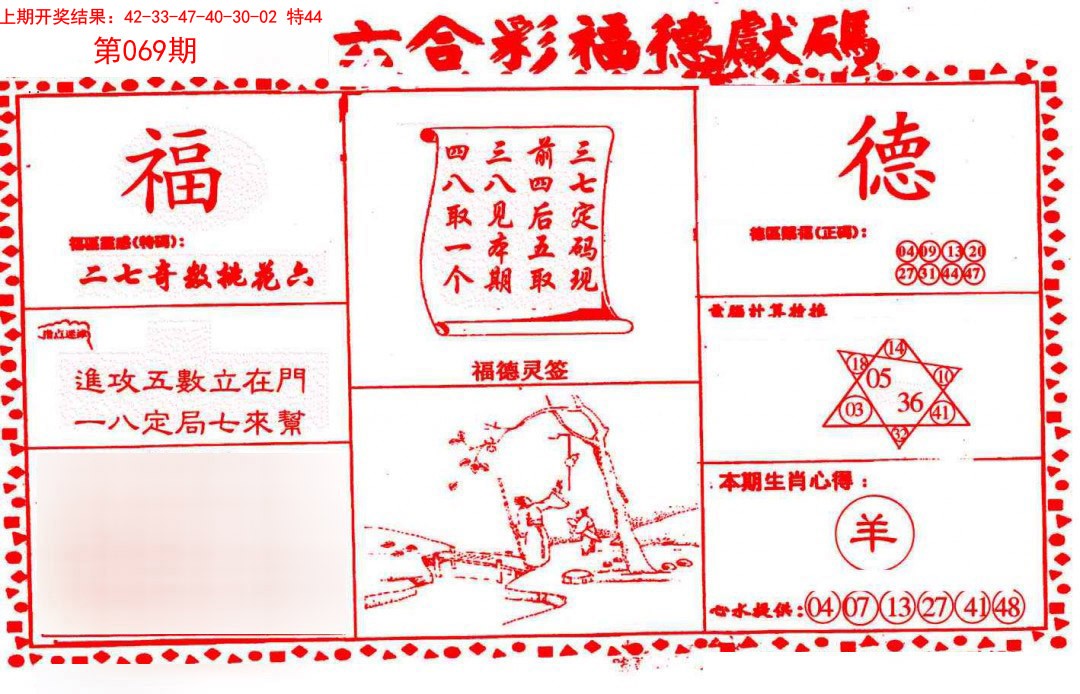 上期开奖结果：42-33-47-40-30-02 特44
第069期
六合彩福德獻碼
福
福區靈感(特碼)：
二七奇数桃花六
指点迷津
進攻五數立在門
一八定局七來幫
三七定码现
前四后五取
三八见本期
四八取一个
福德灵签
德
德區賜福(正碼)：
04 09 13 20
27 31 44 47
電腦計算給推
14
18 10
05
36
03 41
32
本期生肖心得：
羊
心水提供：04 07 13 27 41 48